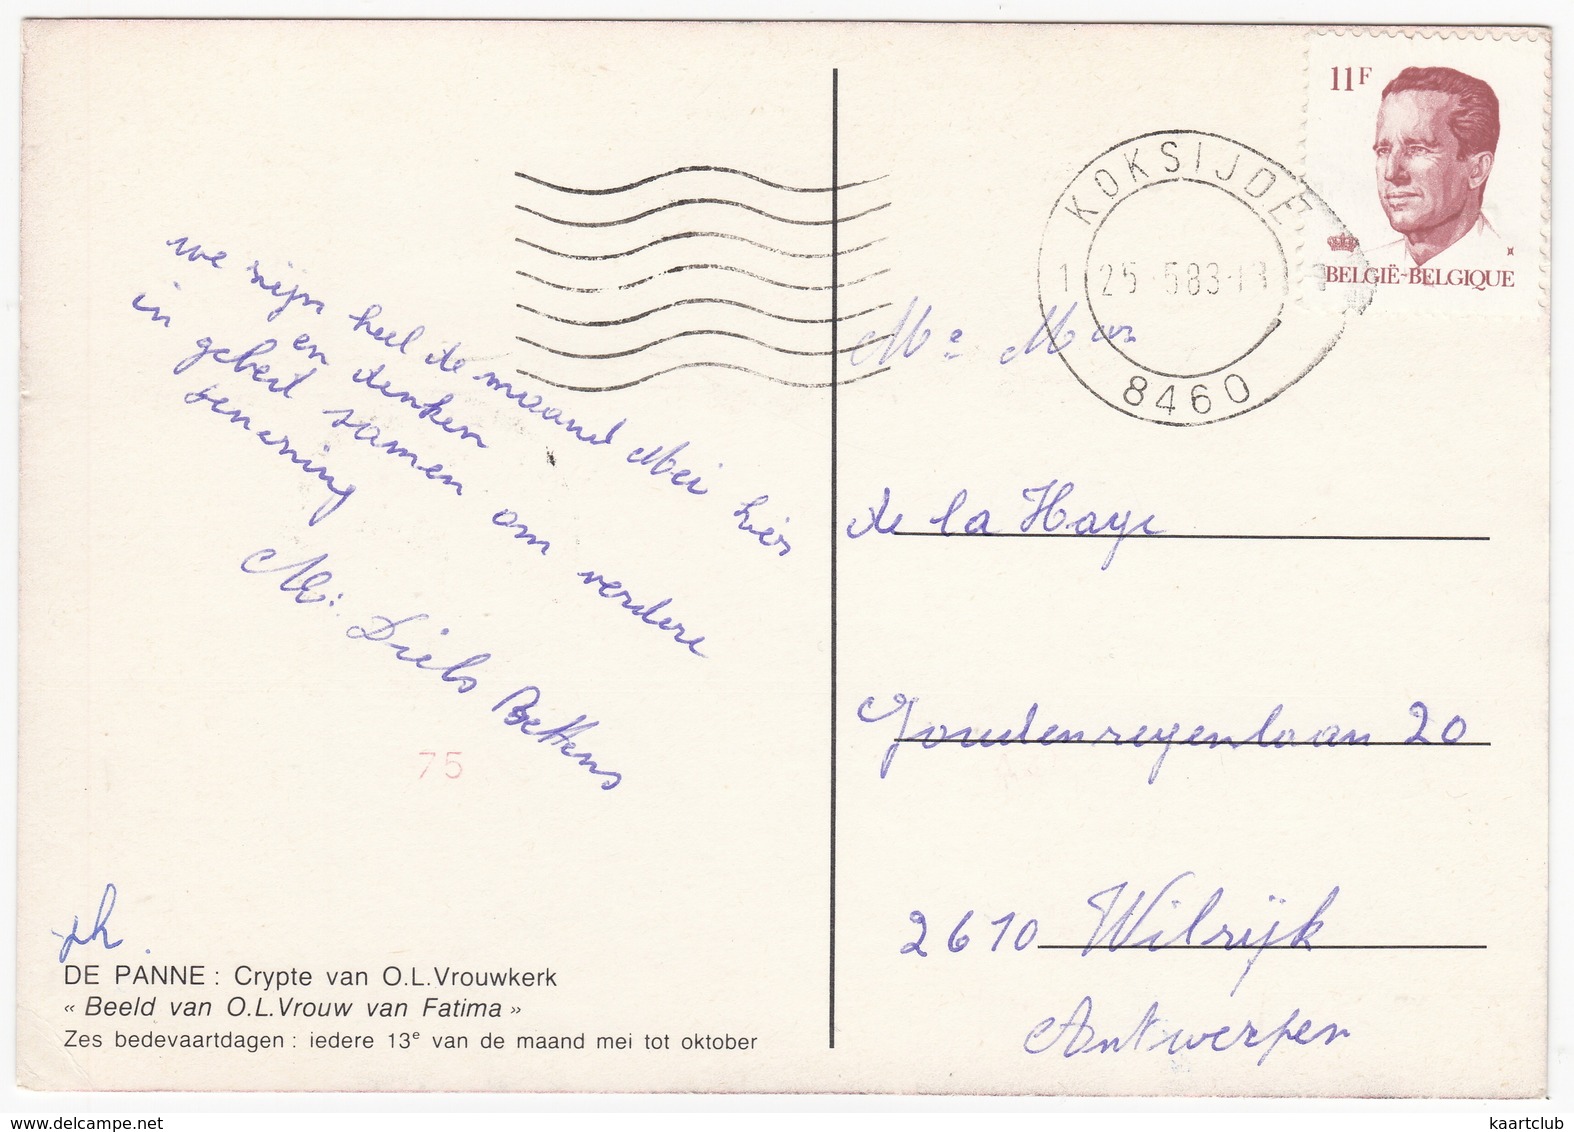 we zijn heel de maand Mei hier
en denken
in gebed samen om verdere
genezing
M. Diels Bettens
75
DE PANNE : Crypte van O.L.Vrouwkerk
« Beeld van O.L.Vrouw van Fatima »
Zes bedevaartdagen : iedere 13e van de maand mei tot oktober
11F
BELGIË-BELGIQUE
KOKSIJDE
25-583-18
8460
de la Haye
Goudenregenlaan 20
2610 Wilrijk
Antwerpen
www.delcampe.net
kaartclub